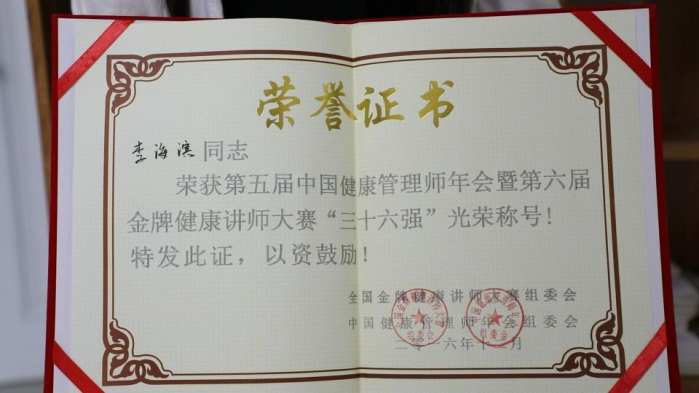 荣誉证书
李海滨 同志
荣获第五届中国健康管理师年会暨第六届
金牌健康讲师大赛“三十六强”光荣称号！
特发此证，以资鼓励！
全国金牌健康讲师大赛组委会
中国健康管理师年会组委会
二零一六年十二月
组委会
组委会